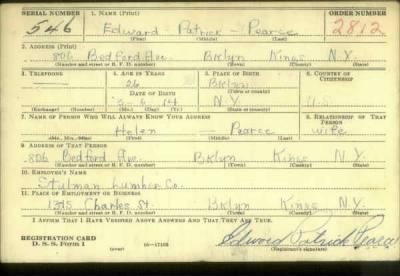 SERIAL NUMBER 1. NAME (Print) ORDER NUMBER
546 Edward Patrick - Pearce 2812
(First) (Middle) (Last)
2. ADDRESS (Print)
806 Bedford Ave. Bklyn Kings N.Y.
(Number and street or R. F. D. number) (Town) (County) (State)
3. TELEPHONE 4. AGE IN YEARS 5. PLACE OF BIRTH 6. COUNTRY OF CITIZENSHIP
— 26 Bklyn
(Town or county)
DATE OF BIRTH
N.Y. U.S.
(Exchange) (Number) (Mo.) (Day) (Yr.) (State or country)
7. NAME OF PERSON WHO WILL ALWAYS KNOW YOUR ADDRESS 8. RELATIONSHIP OF THAT PERSON
Helen — Pearce wife
(Mr., Mrs., Miss) (First) (Middle) (Last)
9. ADDRESS OF THAT PERSON
806 Bedford Ave. Bklyn Kings N.Y.
(Number and street or R. F. D. number) (Town) (County) (State)
10. EMPLOYER'S NAME
Stulman Lumber Co.
11. PLACE OF EMPLOYMENT OR BUSINESS
Charles St. Bklyn Kings N.Y.
(Number and street or R. F. D. number) (Town) (County) (State)
I AFFIRM THAT I HAVE VERIFIED ABOVE ANSWERS AND THAT THEY ARE TRUE.
REGISTRATION CARD
D. S. S. Form 1 (over) 16—17105 Edward Patrick Pearce
(Registrant's signature)